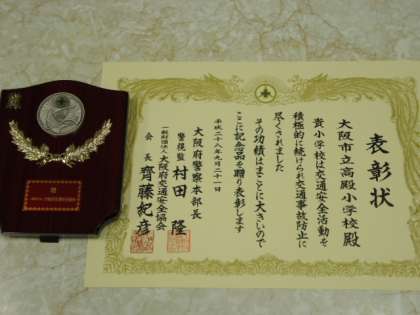 表彰状
大阪市立高殿小学校殿
貴小学校は交通安全活動を
積極的に続けられ交通事故防止に
尽くされました
その功績はまことに大きいので
ここに記念品を贈り表彰します
平成二十八年九月二十一日
大阪府警察本部長
警視監 村田 隆
一般財団法人 大阪府交通安全協会
会長 齊藤紀彦